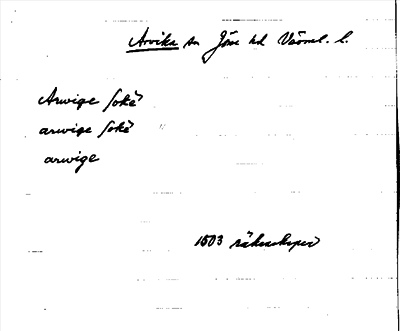 Arvika sn Jösse hd Värml. l.
Arwige sokē
arwige sokē
arwige
1503 räkenskaper